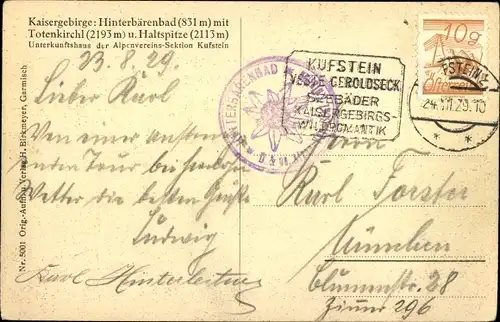 Kaisergebirge: Hinterbärenbad (831 m) mit
Totenkirchl (2193 m) u. Haltspitze (2113 m)
Unterkunftshaus der Alpenvereins-Sektion Kufstein
23. 8. 29.
Lieber Karl
Von einer
Tour bei
Wetter die besten Grüße
Ludwig
Karl
Nr. 5001 Orig.-Aufn. u. Verlag H. Birkmeyer, Garmisch
HINTERBÄRENBAD
KUFSTEIN
VESTE GEROLDSECK
SEEBÄDER
KAISERGEBIRGS-
WILDROMANTIK
10g
KUFSTEIN
24.VIII.29.10
* *
Herrn
Karl Forster
München
Blumenstr. 28
Zimmer 296